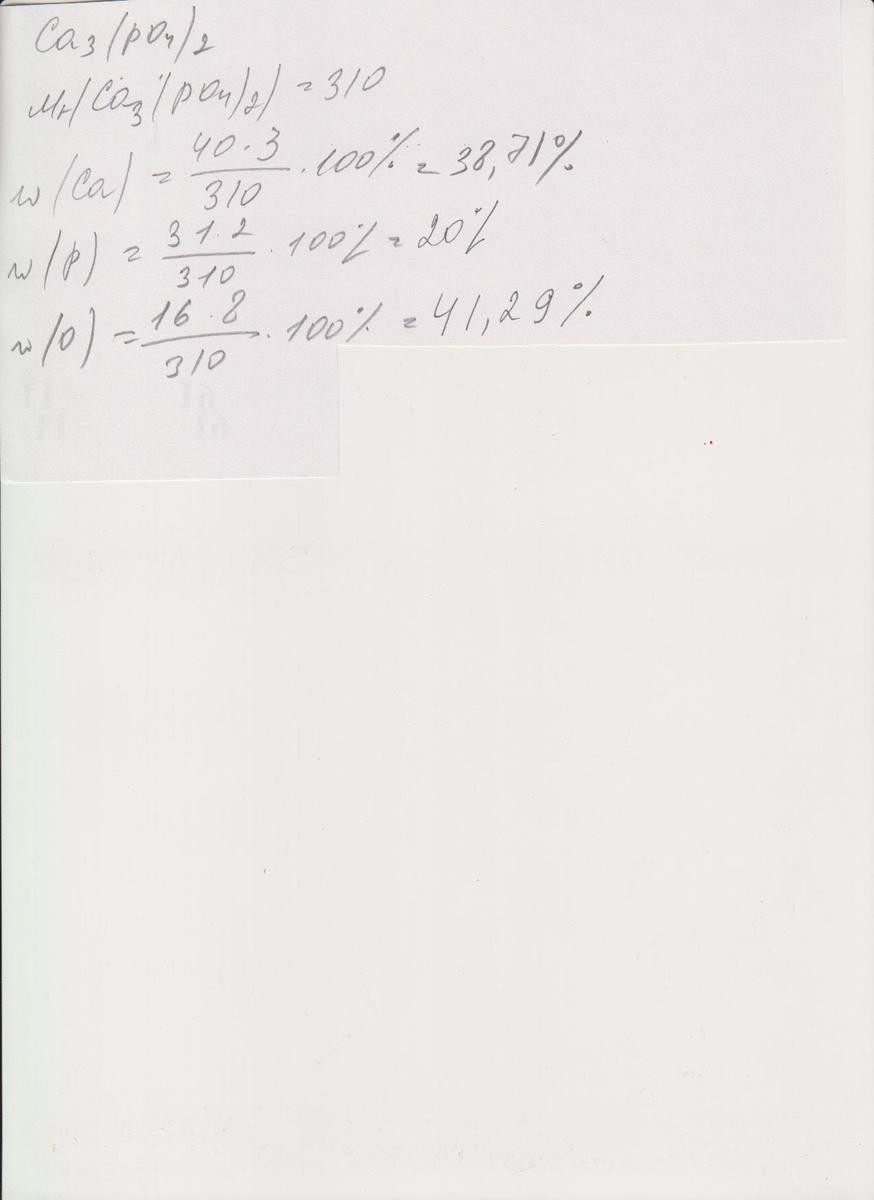 Ca3(PO4)2
Mr(Ca3(PO4)2) = 310
w(Ca) = 40·3/310 · 100% = 38,71%
w(P) = 31·2/310 · 100% = 20%
w(O) = 16·8/310 · 100% = 41,29%